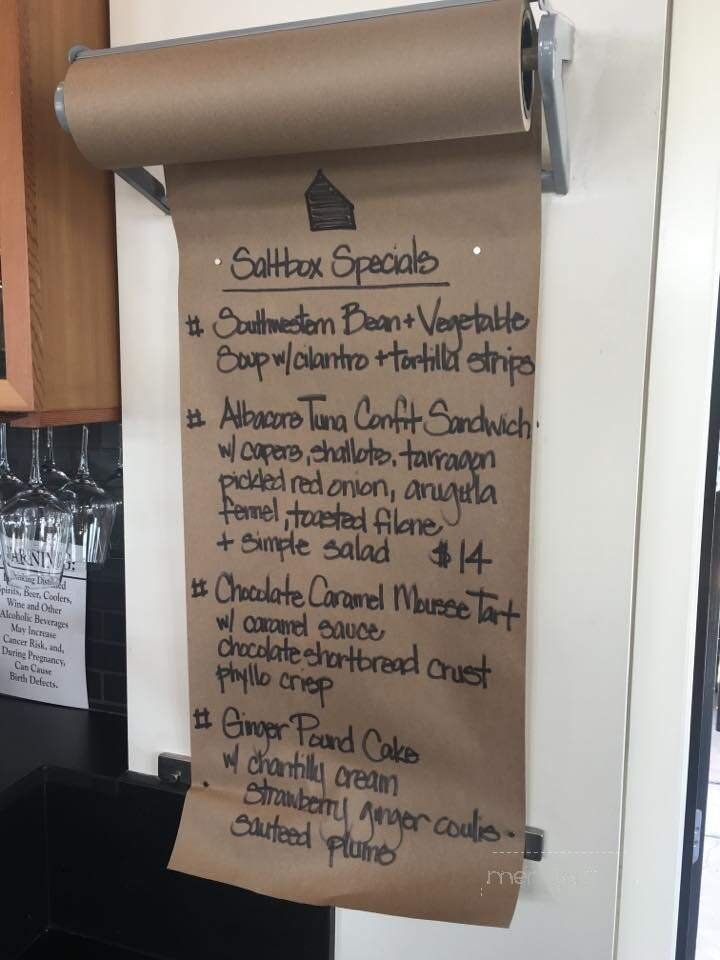 Saltbox Specials
# Southwestern Bean + Vegetable
Soup w/ cilantro + tortilla strips
# Albacore Tuna Confit Sandwich
w/ capers, shallots, tarragon
pickled red onion, arugula
fennel, toasted filone
+ simple salad $14
# Chocolate Caramel Mousse Tart
w/ caramel sauce
chocolate shortbread crust
phyllo crisp
# Ginger Pound Cake
w/ chantilly cream
strawberry ginger coulis
sauteed plums
WARNING:
Drinking Distilled
Spirits, Beer, Coolers,
Wine and Other
Alcoholic Beverages
May Increase
Cancer Risk, and,
During Pregnancy,
Can Cause
Birth Defects.